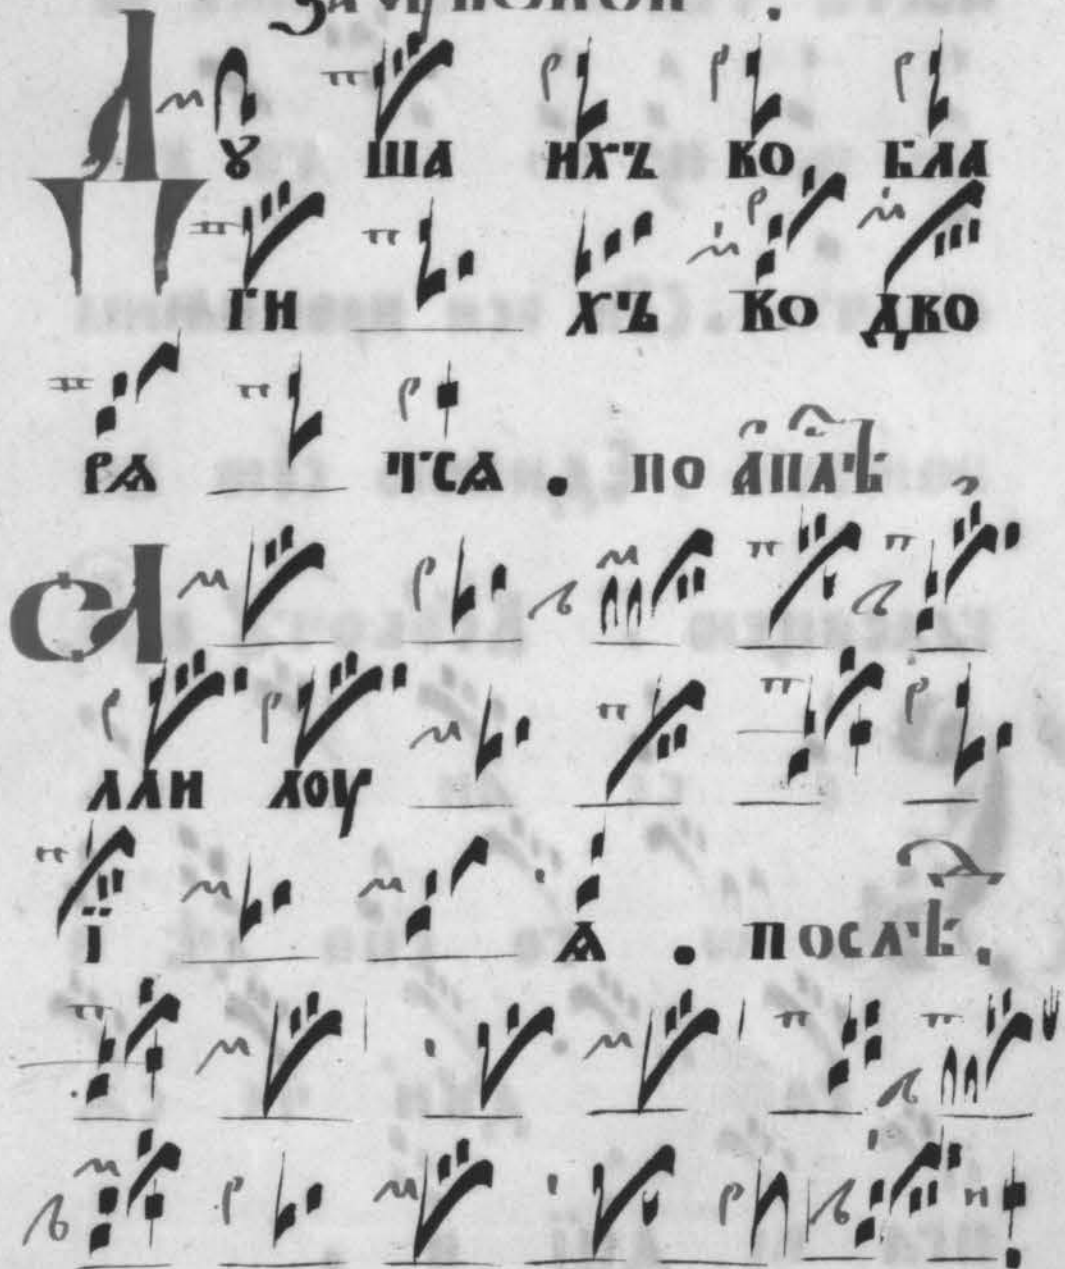 Дꙋ ша ихъ во бла
ги хъ во дво
рѧ тсѧ . по апⷭ҇лѣ
А
лли лоу
ї ѧ . послѣⷣ .